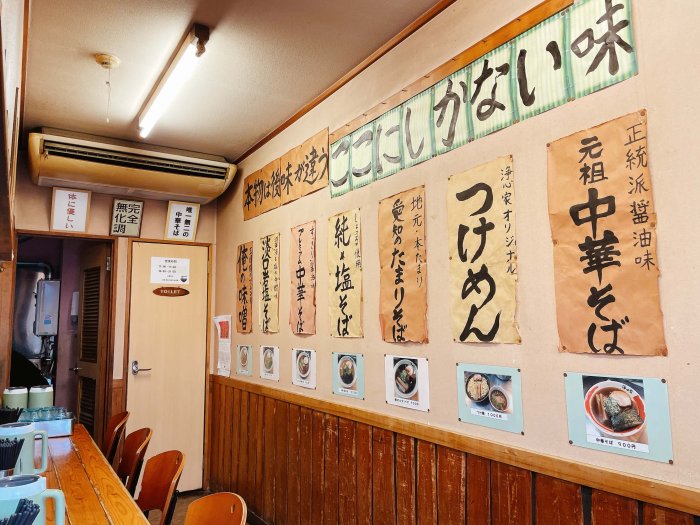 本物は後味が違う
ここにしかない味
体に優しい
完全
無化調
唯一無二の
中華そば
TOILET
俺の味噌
淡口煮塩そば
中華そば
純すい塩そば
地元・本たまり
愛知のたまりそば
浄心家オリジナル
つけめん
正統派醤油味
元祖中華そば
中華そば 900円